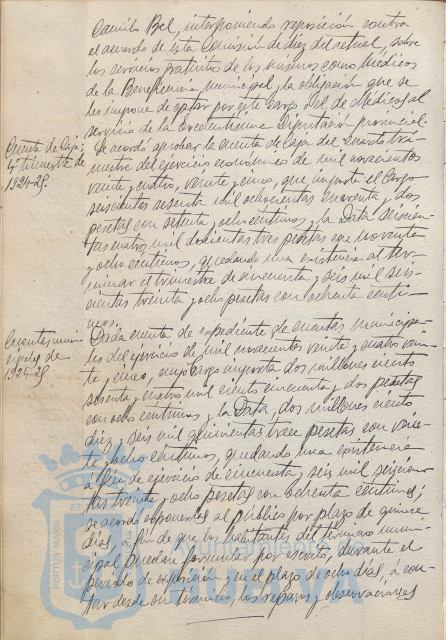 Camilo Bel, interponiendo reposición contra
el acuerdo de esta Comisión de diez del actual, sobre
los servicios gratuitos de los mismos como médicos
de la Beneficencia municipal, y la obligación que se
les impone de optar por este cargo o el de Médico al
servicio de la Excelentísima Diputación provincial.
Cuenta de Caja,
4º trimestre de
1924-25.
Se acordó aprobar la cuenta de Caja del cuarto tri-
mestre del ejercicio económico de mil novecientos
veinte y cuatro, veinte y cinco, que importa el Cargo
seiscientas sesenta mil ochocientas cuarenta y dos
pesetas con setenta y ocho céntimos, y la Data seiscien-
tas cuatro mil doscientas tres pesetas con noventa
y ocho céntimos, quedando una existencia al ter-
minar el trimestre de cincuenta y seis mil seis-
cientas treinta y ocho pesetas con ochenta cénti-
mos.
Cuentas muni-
cipales de
1924-25
Dada cuenta de expediente de cuentas municipa-
les del ejercicio de mil novecientos veinte y cuatro vein-
te y cinco, cuyo Cargo importa dos millones ciento
sesenta y cuatro mil ciento cincuenta y dos pesetas
con ocho céntimos y la Data, dos millones ciento
diez y seis mil quinientas trece pesetas con vein-
te y ocho céntimos, quedando una existencia
a fin de ejercicio de cincuenta y seis mil seiscien-
tas treinta y ocho pesetas con ochenta céntimos;
se acordó exponerlas al público por plazo de quince
días, a fin de que los habitantes del término muni-
cipal puedan formular por escrito, durante el
periodo de exposición y en el plazo de ocho días, a con-
tar desde su término, los reparos y observaciones
PORTUS MAGNUS
Ayuntamiento